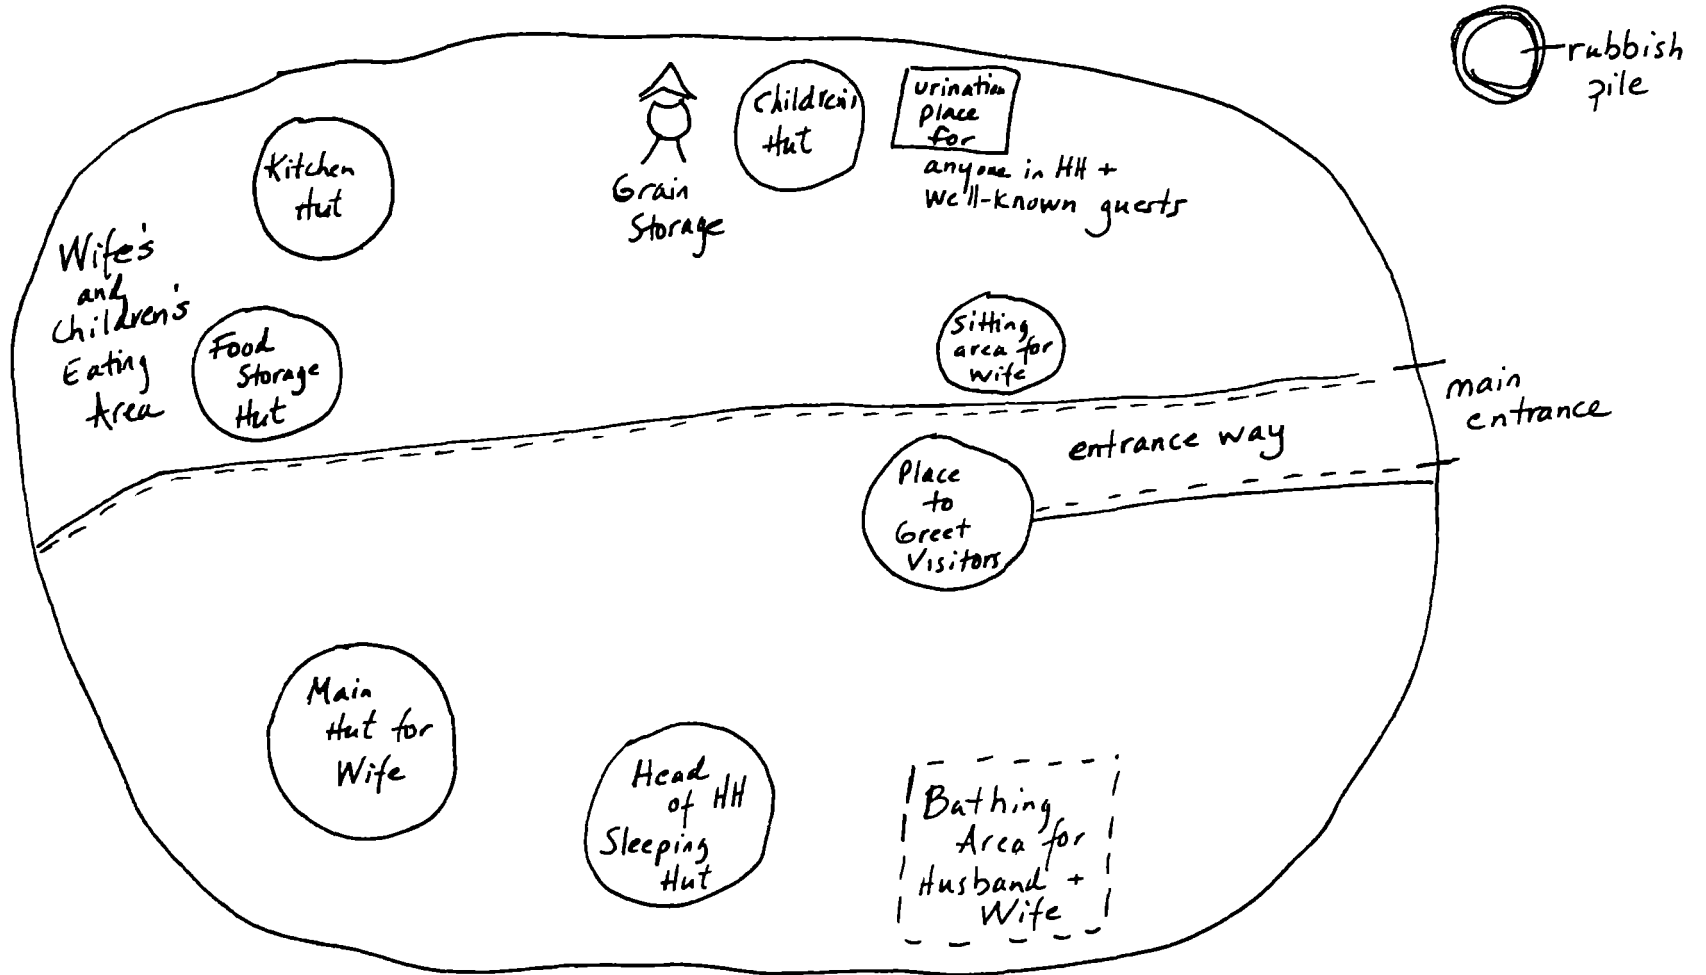 rubbish
pile
Children's
Hut
urination
place
for
anyone in HH +
well-known guests
Kitchen
Hut
Grain
Storage
Wife's
and
Children's
Eating
Area
Food
Storage
Hut
Sitting
area for
Wife
main
entrance
entrance way
Place
to
Greet
Visitors
Main
Hut for
Wife
Head
of HH
Sleeping
Hut
Bathing
Area for
Husband +
Wife